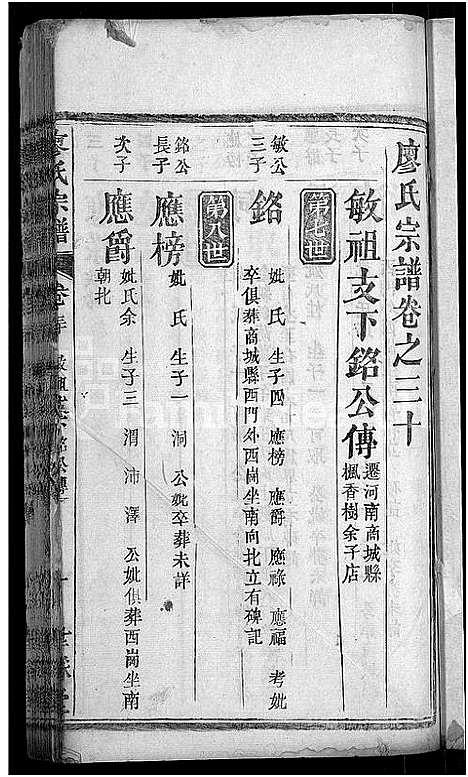 廖氏宗譜卷之三十
敏祖支下銘公傳
遷河南商城縣
楓香樹余子店
第七世
敏公
三子
銘
妣氏 生子四 應榜 應爵 應祿 應福 考妣
卒俱葬商城縣西門外西崗坐南向北立有碑記
第八世
銘公
長子
應榜
妣氏 生子一 洞 公妣卒葬未詳
次子
應爵
妣氏余 生子三 渭 沛 澤 公妣俱葬西崗坐南
朝北
廖氏宗譜
卷三十